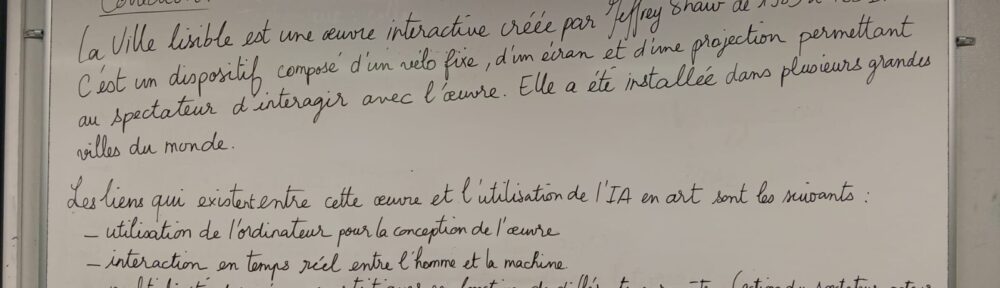 La Ville lisible est une œuvre interactive créée par Jeffrey Shaw de
C'est un dispositif composé d'un vélo fixe, d'un écran et d'une projection permettant
au spectateur d'interagir avec l'œuvre. Elle a été installée dans plusieurs grandes
villes du monde.
Les liens qui existent entre cette œuvre et l'utilisation de l'IA en art sont les suivants :
– utilisation de l'ordinateur pour la conception de l'œuvre
– interaction en temps réel entre l'homme et la machine